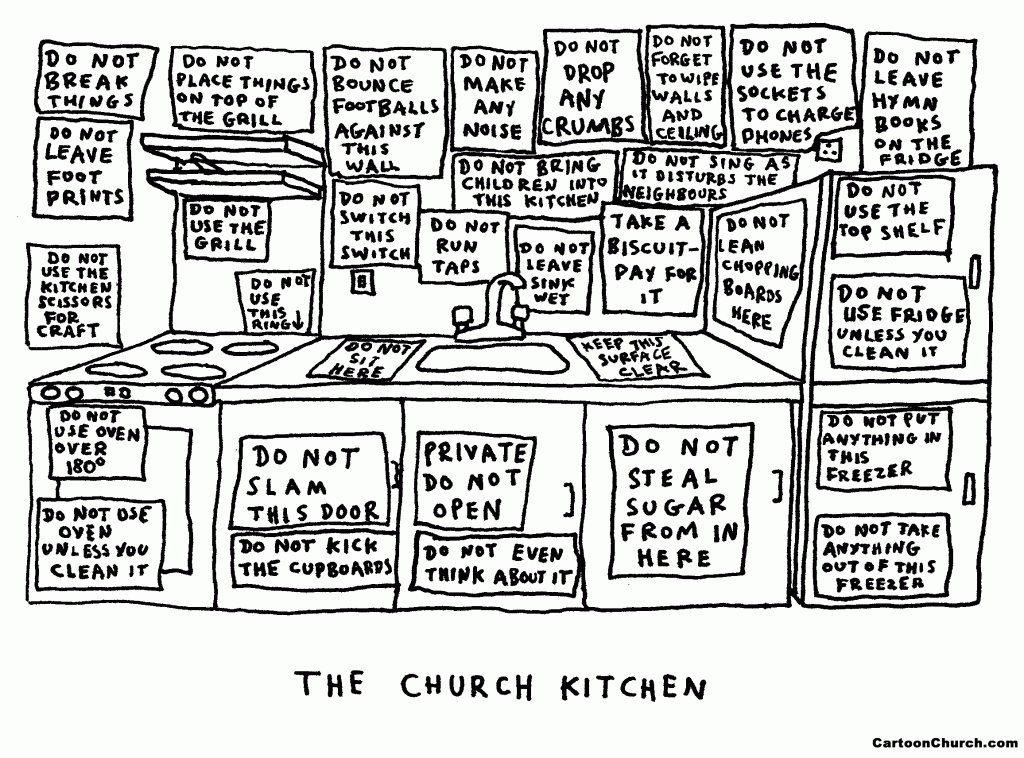 DO NOT
BREAK
THINGS
DO NOT
PLACE THINGS
ON TOP OF
THE GRILL
DO NOT
BOUNCE
FOOTBALLS
AGAINST
THIS
WALL
DO NOT
MAKE
ANY
NOISE
DO NOT
DROP
ANY
CRUMBS
DO NOT
FORGET
TO WIPE
WALLS
AND
CEILING
DO NOT
USE THE
SOCKETS
TO CHARGE
PHONES
DO NOT
LEAVE
HYMN
BOOKS
ON THE
FRIDGE
DO NOT
LEAVE
FOOT
PRINTS
DO NOT BRING
CHILDREN INTO
THIS KITCHEN
DO NOT SING AS
IT DISTURBS THE
NEIGHBOURS
DO NOT
USE THE
GRILL
DO NOT
SWITCH
THIS
SWITCH
DO NOT
RUN
TAPS
DO NOT
LEAVE
SINK
WET
TAKE A
BISCUIT-
PAY FOR
IT
DO NOT
LEAN
CHOPPING
BOARDS
HERE
DO NOT
USE THE
TOP SHELF
DO NOT
USE THE
KITCHEN
SCISSORS
FOR
CRAFT
DO NOT
USE
THIS
RING↓
DO NOT
USE FRIDGE
UNLESS YOU
CLEAN IT
DO NOT
SIT
HERE
KEEP THIS
SURFACE
CLEAR
DO NOT
USE OVEN
OVER
180°
DO NOT USE
OVEN
UNLESS YOU
CLEAN IT
DO NOT
SLAM
THIS DOOR
DO NOT KICK
THE CUPBOARDS
PRIVATE
DO NOT
OPEN
DO NOT EVEN
THINK ABOUT IT
DO NOT
STEAL
SUGAR
FROM IN
HERE
DO NOT PUT
ANYTHING IN
THIS
FREEZER
DO NOT TAKE
ANYTHING
OUT OF THIS
FREEZER
THE CHURCH KITCHEN
CartoonChurch.com